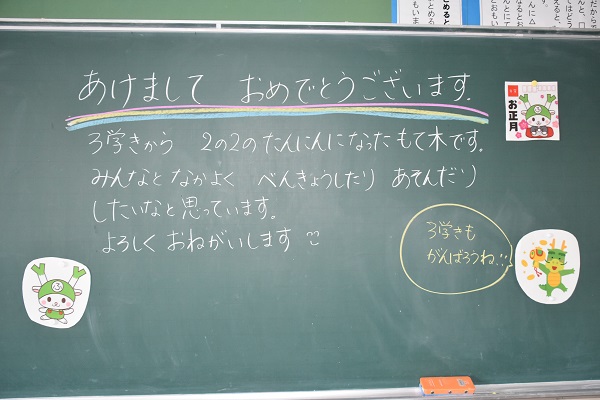 あけまして おめでとうございます。
3学きから 2の2のたんにんになったもて木です。
みんなとなかよく べんきょうしたり あそんだり
したいなと思っています。
よろしくおねがいします
3学きも
がんばろうね!!
お正月